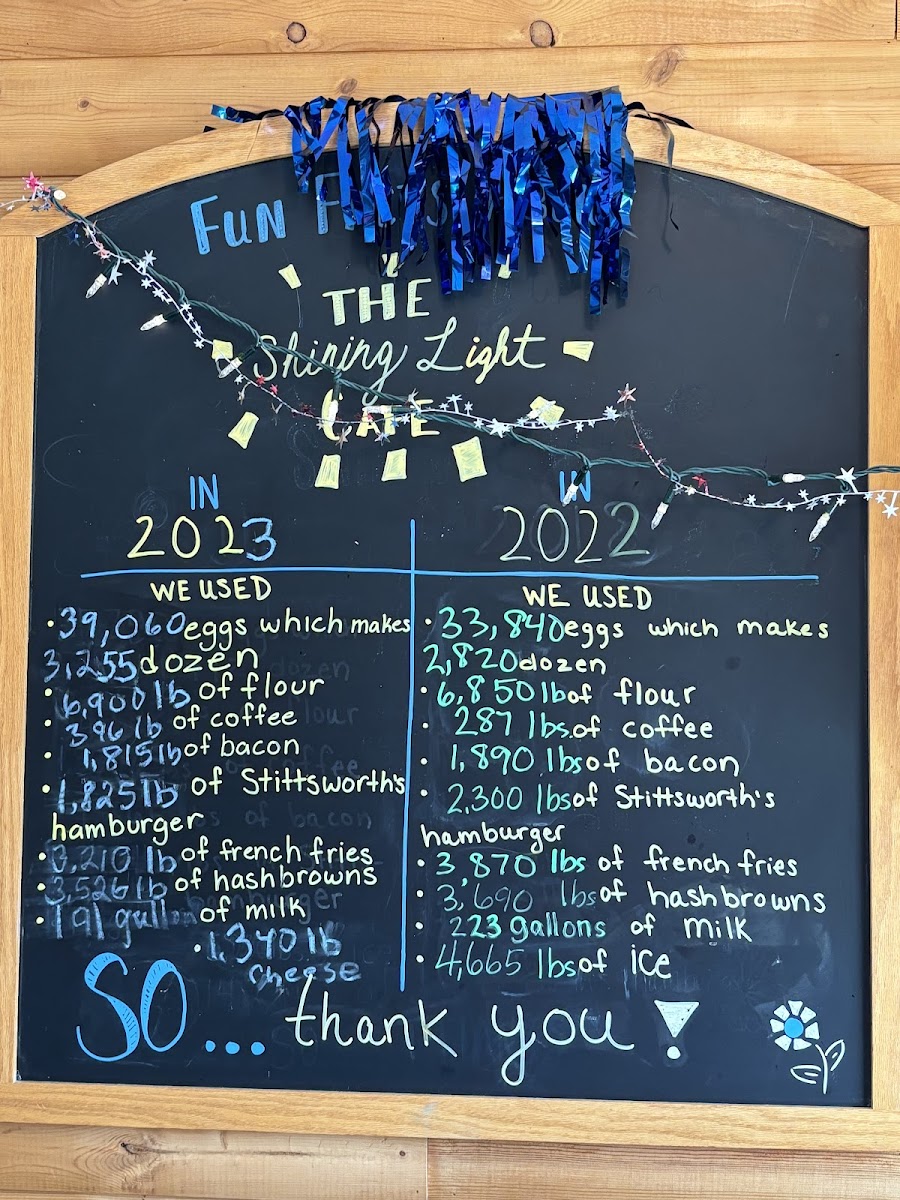 Fun
THE
Shining Light
CAFE
IN
2023
WE USED
• 39,060 eggs which makes
3,255 dozen
• 6,900 lb of flour
• 396 lb of coffee
• 1,815 lb of bacon
• 1,825 lb of Stittsworth's
hamburger
• lb of french fries
• 3,526 lb of hashbrowns
• 191 gallon of milk
• 1,340 lb
cheese
IN
2022
WE USED
• 33,840 eggs which makes
2,820 dozen
• 6,850 lb of flour
• 287 lbs. of coffee
• 1,890 lbs of bacon
• 2,300 lbs of Stittsworth's
hamburger
• 3,870 lbs of french fries
• 3,690 lbs of hashbrowns
• 223 gallons of milk
• 4,665 lbs of ice
SO... thank you!